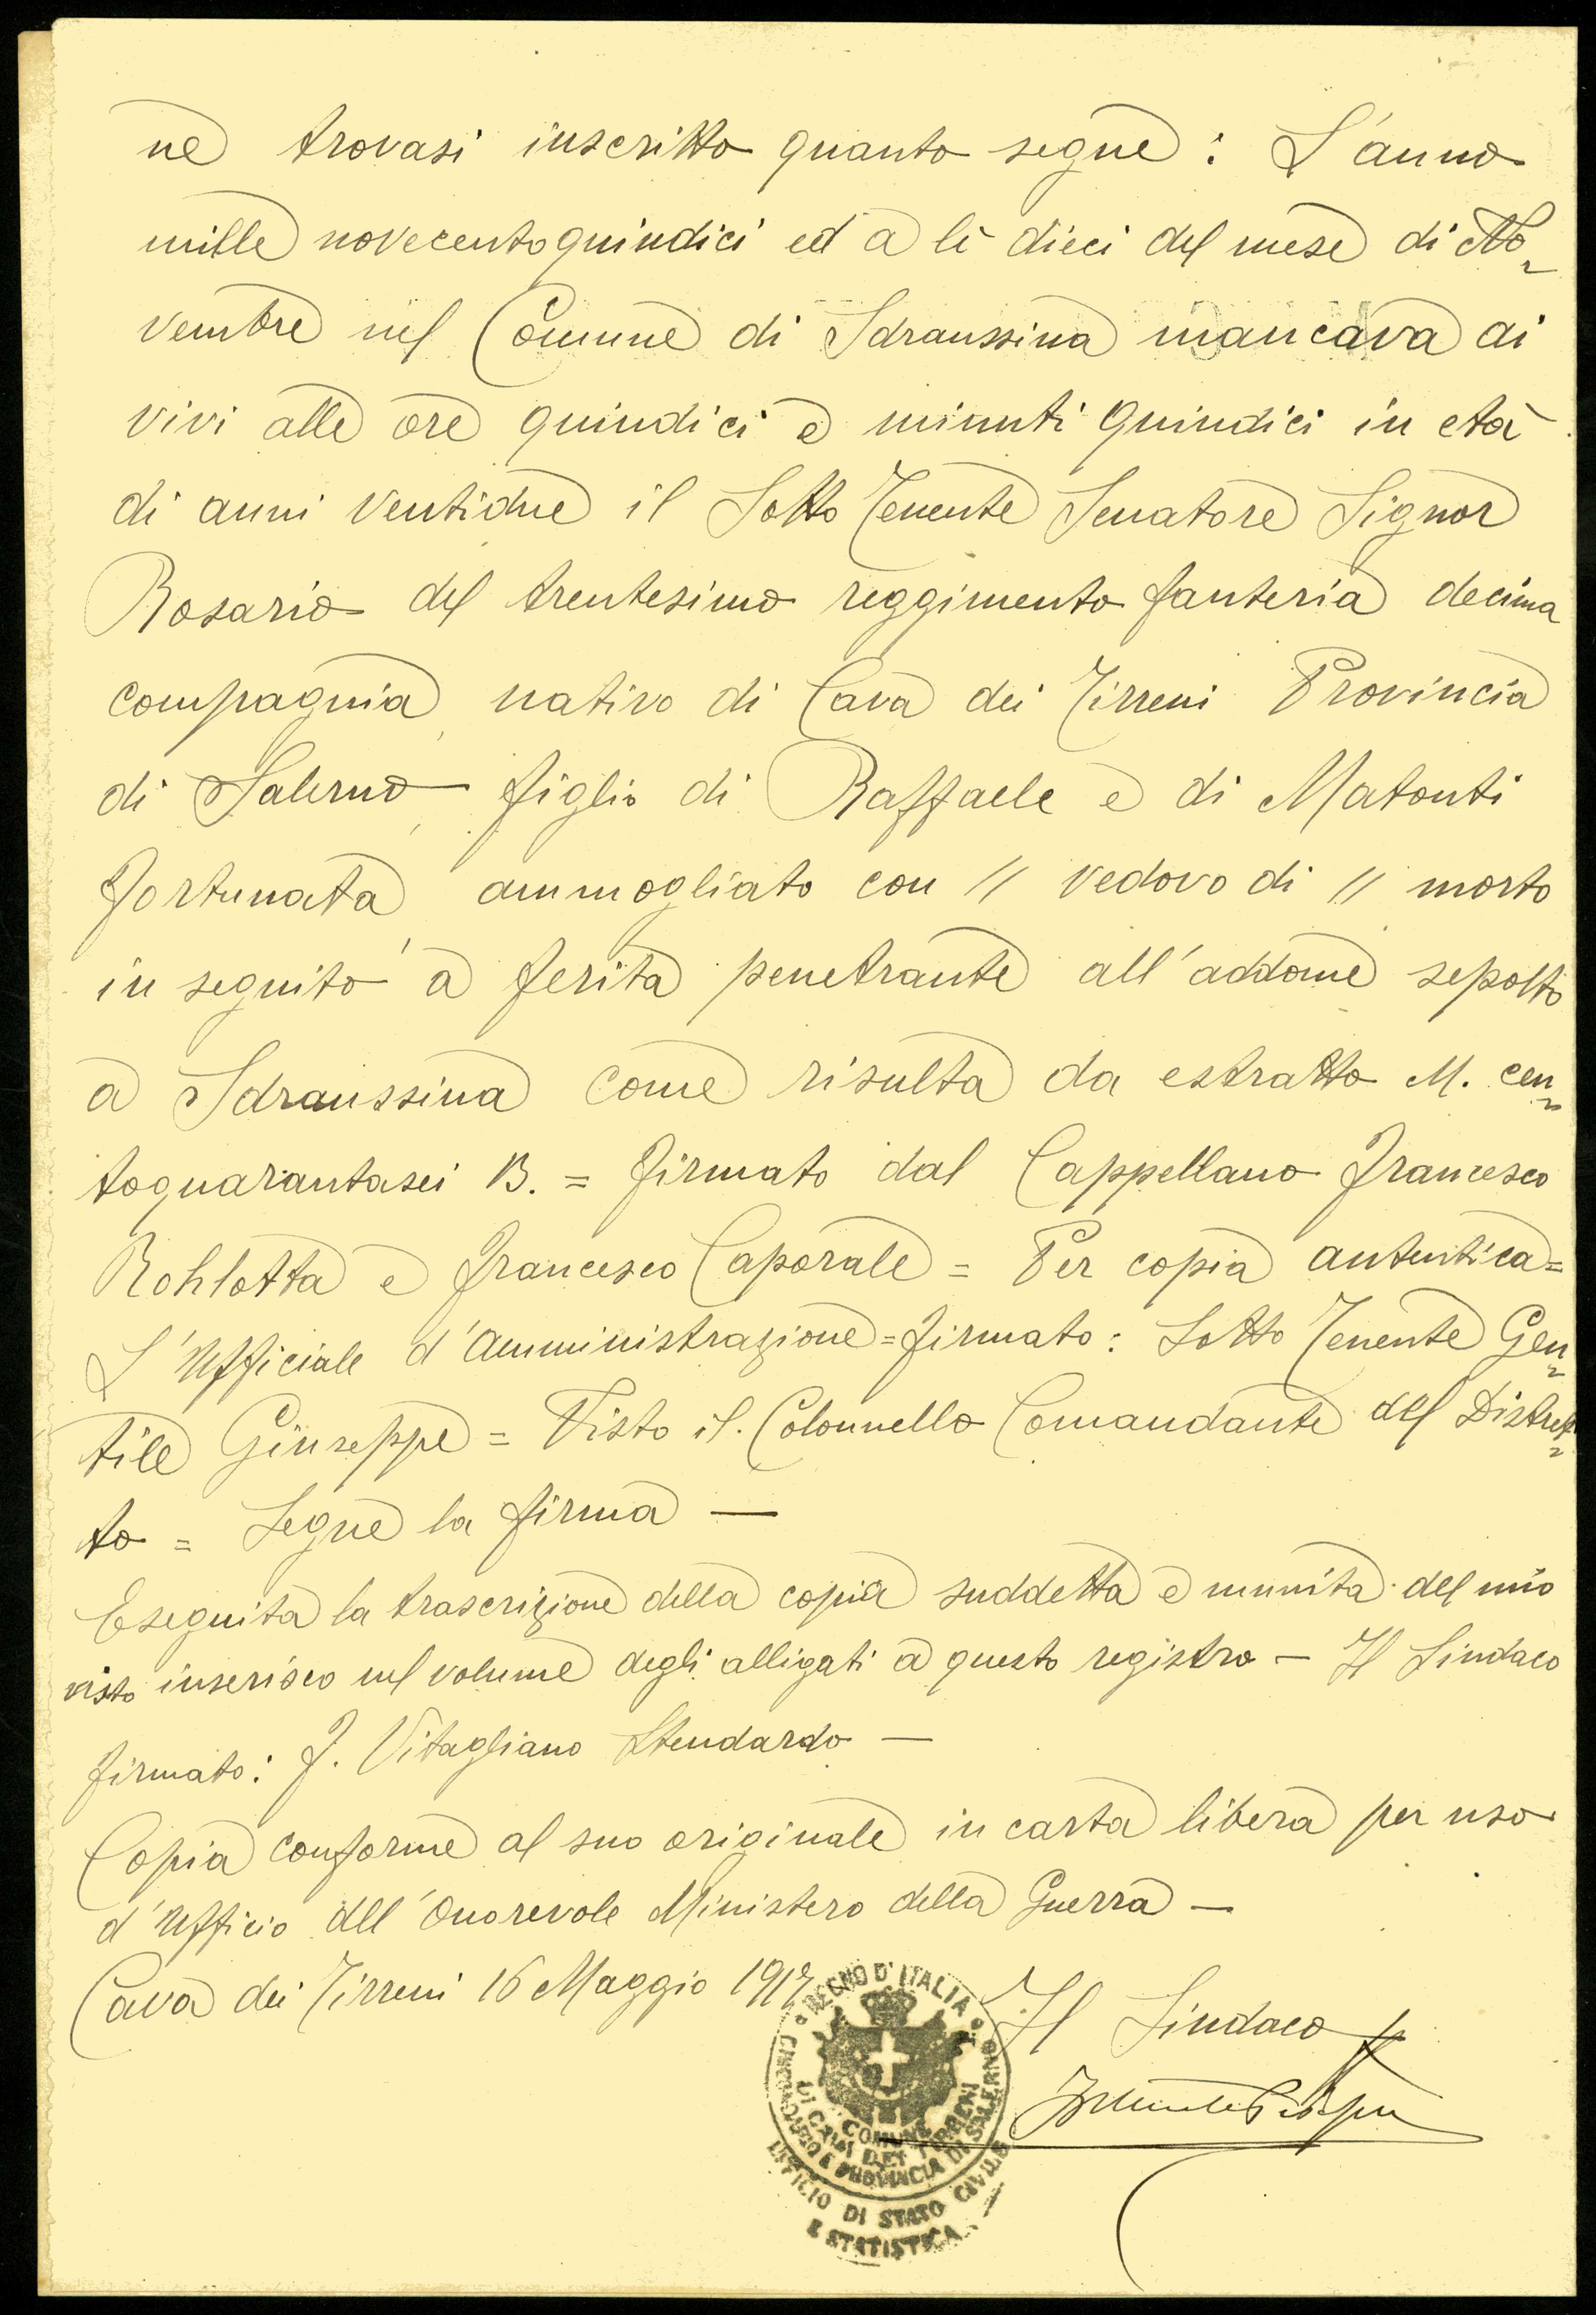 ne trovasi inscritto quanto segue : L'anno
mille novecentoquindici ed a lì dieci del mese di No=
vembre nel Comune di Sdraussina mancava ai
vivi alle ore quindici e minuti quindici in età
di anni ventidue il Sotto Tenente Senatore Signor
Rosario del trentesimo reggimento fanteria decima
compagnia, nativo di Cava dei Tirreni Provincia
di Salerno, figlio di Raffaele e di Matonti
Fortunata, ammogliato con // vedovo di // morto
in seguito a ferita penetrante all'addome sepolto
a Sdraussina come risulta da estratto M. cen=
toquarantasei B. = firmato dal Cappellano Francesco
Rohlotta e Francesco Caporale = Per copia autentica =
L'Ufficiale d'Amministrazione = firmato : Sotto Tenente Gen=
tile Giuseppe = Visto il Colonnello Comandante del Distret=
to = Segue la firma —
Eseguita la trascrizione della copia suddetta e munita del mio
visto inserisco nel volume degli alligati a questo registro — Il Sindaco
firmato : F. Vitagliano Stendardo —
Copia conforme al suo originale in carta libera per uso
d'Ufficio dell'Onorevole Ministero della Guerra —
Cava dei Tirreni 16 Maggio 1917
Il Sindaco
REGNO D'ITALIA
COMUNE
DI CAVA DEI TIRRENI
CIRCONDARIO E PROVINCIA DI SALERNO
UFFICIO DI STATO CIVILE
E STATISTICA